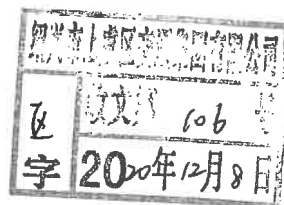 绍兴市上虞区交通集团有限公司
收文 106 号
区字 2020年12月8日